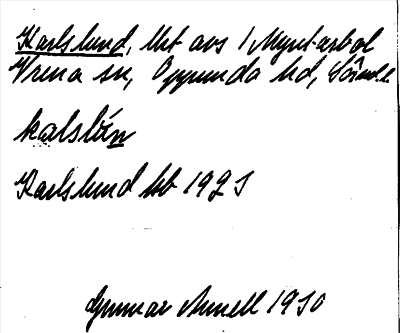 Karlslund, lht avs 1 Mynt-arbol
Vrena sn, Oppunda hd, Sörml.
kalslún
Karlslund kb 1921
Gunnar Annell 1930